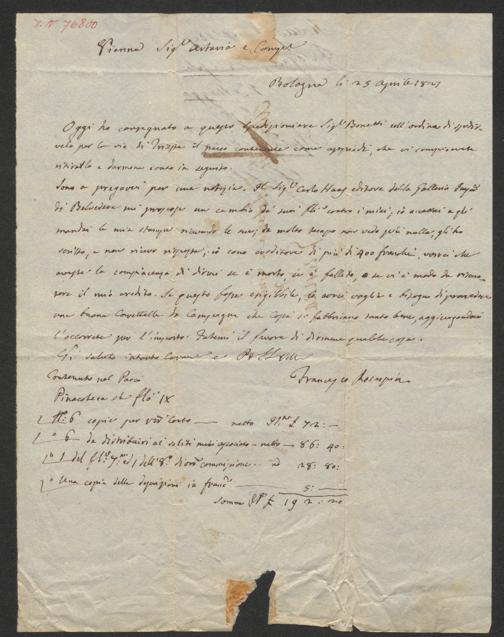 I. N. 76800
Vienna Sig.ri Artaria e Comp.
Bologna li 25 Aprile 1827
Oggi ho consegnato a questo spedizioniere Sig.r Bonetti coll'ordine di spedir-
velo per la via di Trieste il pacco contenente come appiedi, che vi compiacerete
riceverlo e darmene conto in seguito.
Sono a pregarvi per una notizia. Il Sig.r Carlo Haas editore della Galleria
di Belvedere mi propose un cambio de' suoi contro i miei, io accettai e gli
mandai le mie stampe ricevendo le sue, da molto tempo non vedo più nulla, gli ho
scritto, e non ricevo risposte, io sono creditore di più di 400 franchi, vorrei che
aveste la compiacenza di dirmi se è morto, se è fallito, e se vi è modo di
il mio credito. Se questo fosse esigibile, io avrei voglia e bisogno di provvedere
una buona da Campagna che costì si fabbricano tanto bene, aggiungendovi
l'occorrente per l'importo. Fatemi il favore di dirmene qualche cosa.
saluto intanto
Francesco Rosaspina
Contenuto nel Pacco
Pinacoteca IX
6 copie per vostro Conto — netto 72: —
6 da distribuirsi ai soliti miei associati - netto — 86: 40:
1 del 7.mo ed 1 dell'8.o di commissione — 28: 80:
Una copia delle in — 5: —
Somma 192: 20